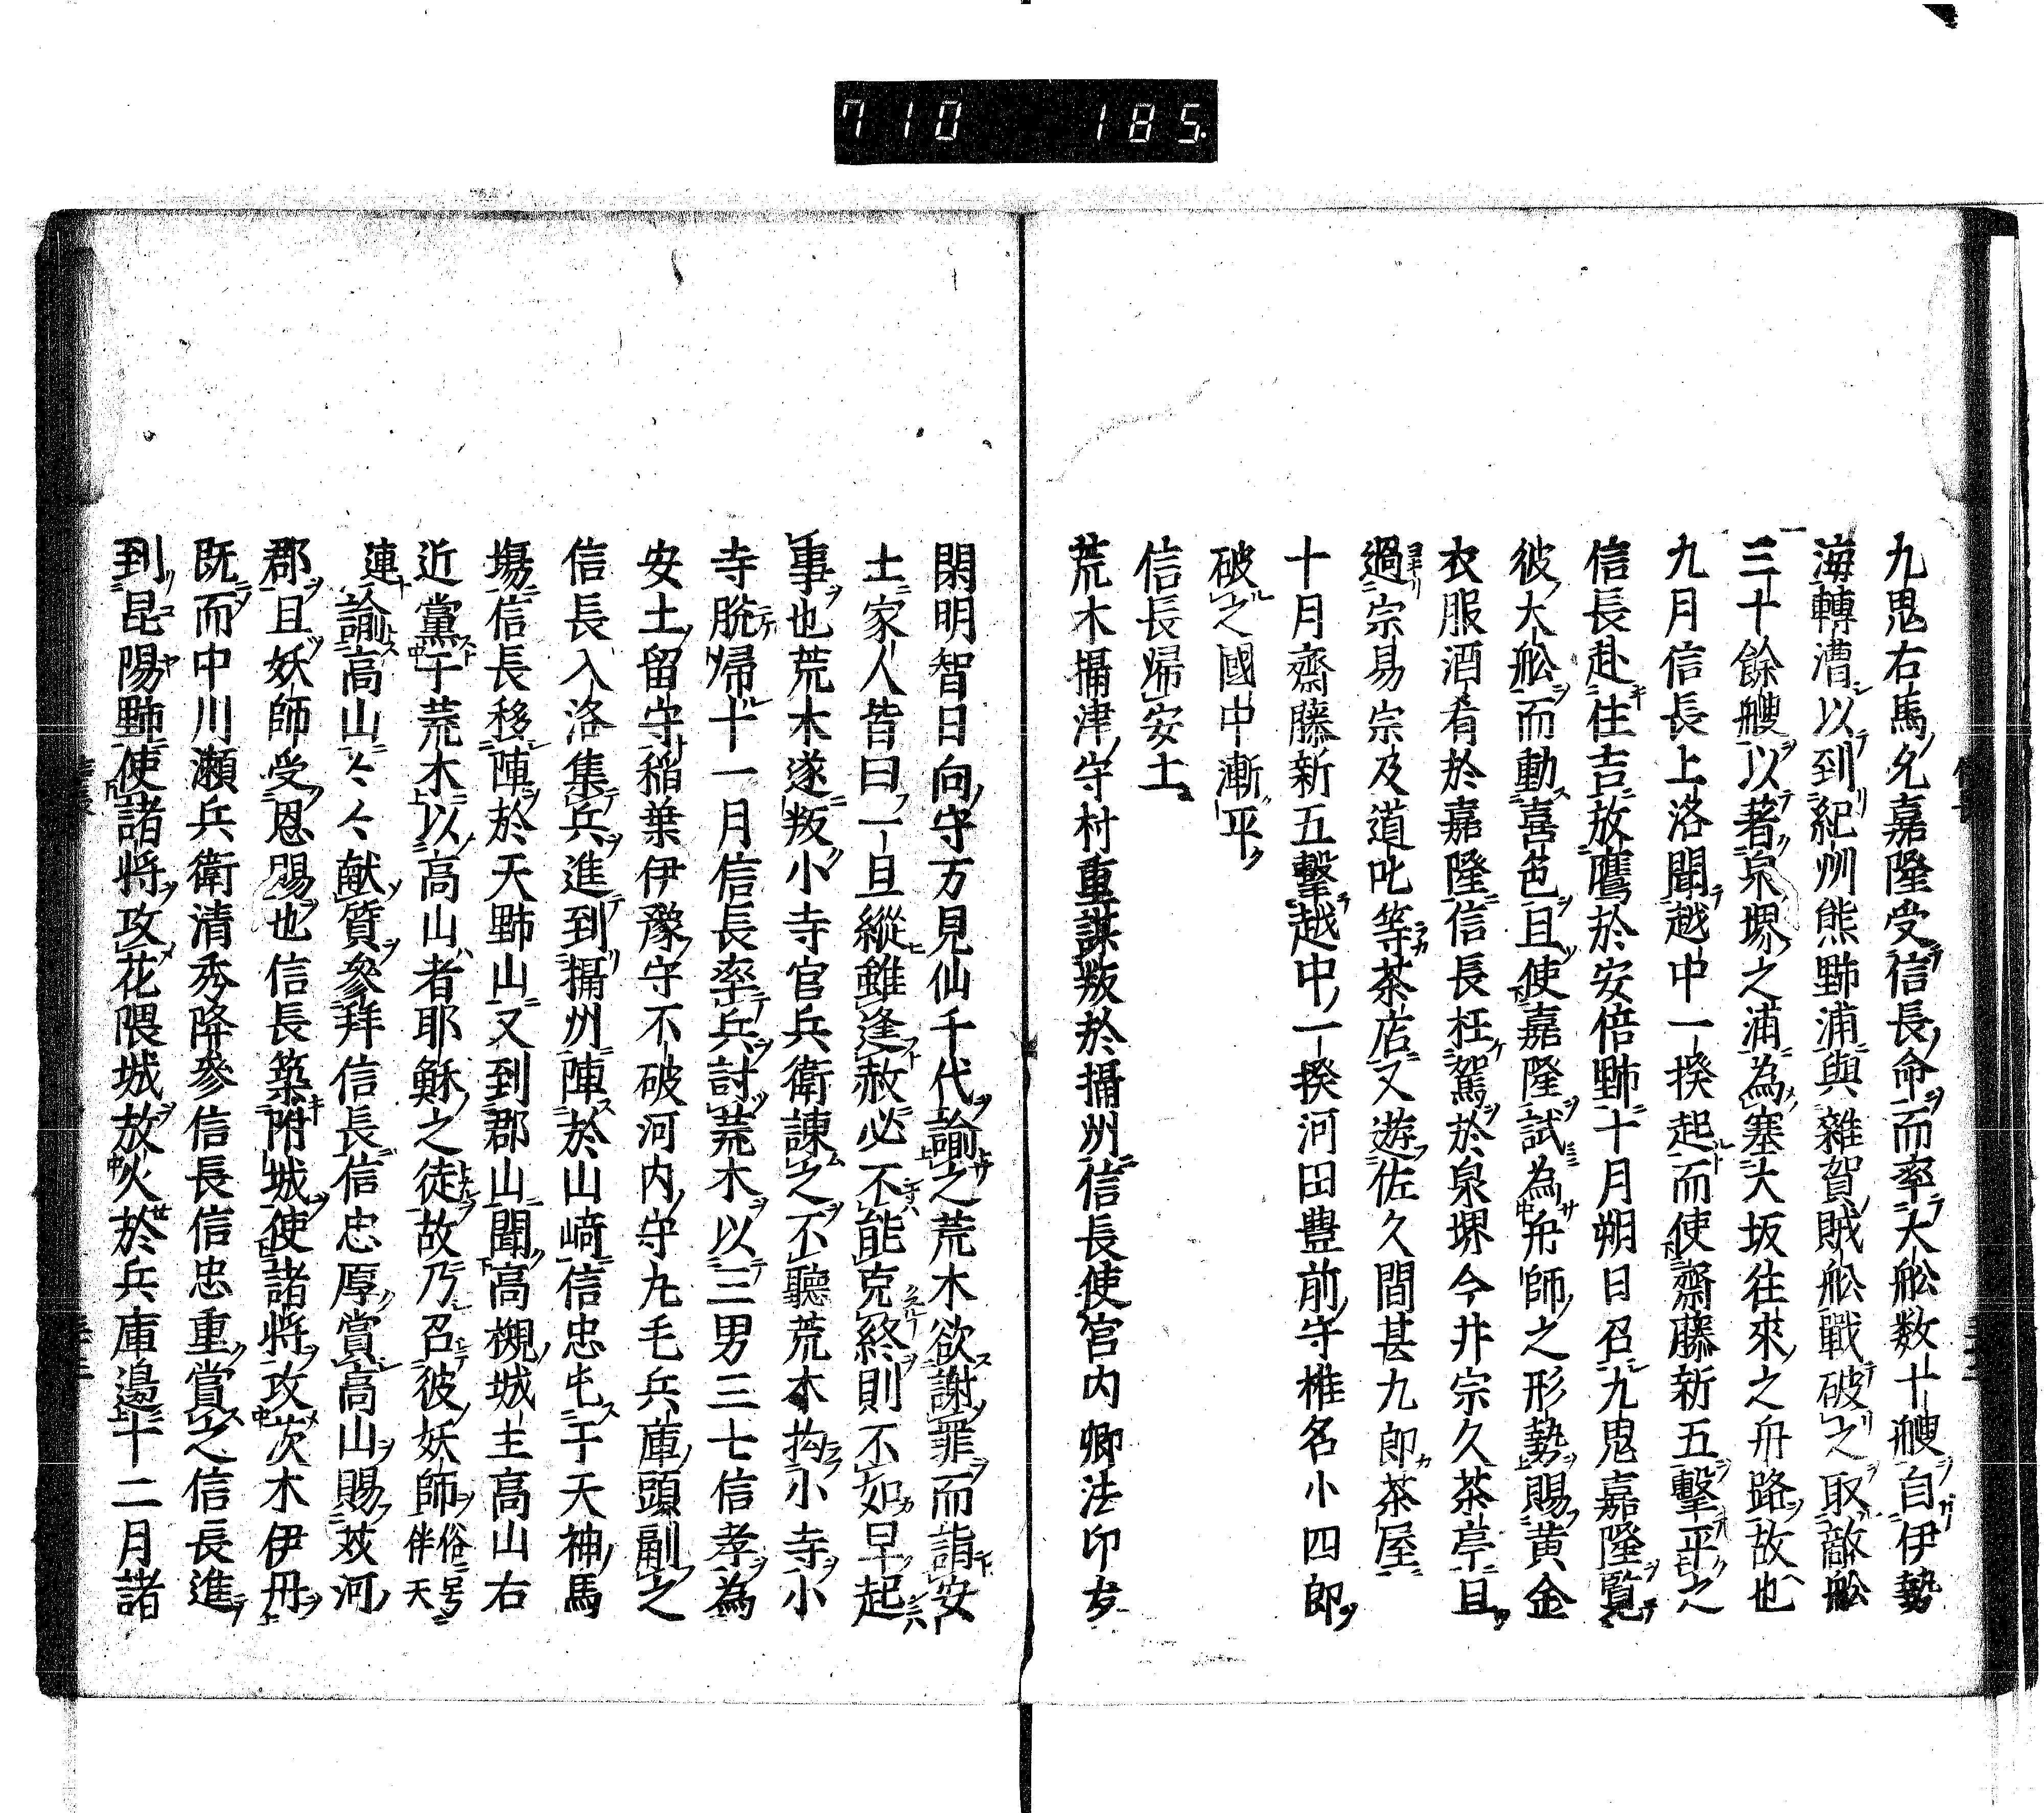 710 185.
九鬼右馬允嘉隆受信長命而率大舩数十艘自伊勢
海轉漕以到紀州熊野浦與雜賀賊舩戰破之取敵舩
三十餘艘以著泉堺之浦為塞大坂往來之舟路故也
九月信長上洛聞越中一揆起而使齋藤新五擊平之
信長赴住吉放鷹於安倍野十月朔日召九鬼嘉隆覧
彼大舩而動喜色且使嘉隆試為舟師之形勢賜黄金
衣服酒肴於嘉隆信長枉駕於泉堺今井宗久茶亭且
過宗易宗及道叱等茶店又遊佐久間甚九郎茶屋
十月齋藤新五擊越中一揆河田豊前守椎名小四郎
破之國中漸平
信長帰安土
荒木攝津守村重謀叛於攝州信長使宮内卿法印友
閑明智日向守万見仙千代諭之荒木欲謝罪而詣安
土家人皆曰一旦縱雖逢赦必不能克終則不如早起
事也荒木遂叛小寺官兵衛諫之不聽荒木拘小寺小
寺脱帰十一月信長率兵討荒木以三男三七信孝為
安土留守稲葉伊豫守不破河内守丸毛兵庫頭副之
信長入洛集兵進到攝州陣於山﨑信忠屯于天神馬
場信長移陣於天野山又到郡山聞高槻城主高山右
近黨于荒木以高山者耶穌之徒故乃召彼妖師俗号伴天
連諭高山々々献質參拜信長信忠厚賞高山賜芥河
郡且妖師受恩賜也信長築附城使諸将攻茨木伊丹
既而中川瀬兵衛清秀降參信長信忠重賞之信長進
到昆陽野使諸将攻花隈城放火於兵庫邉十二月諸